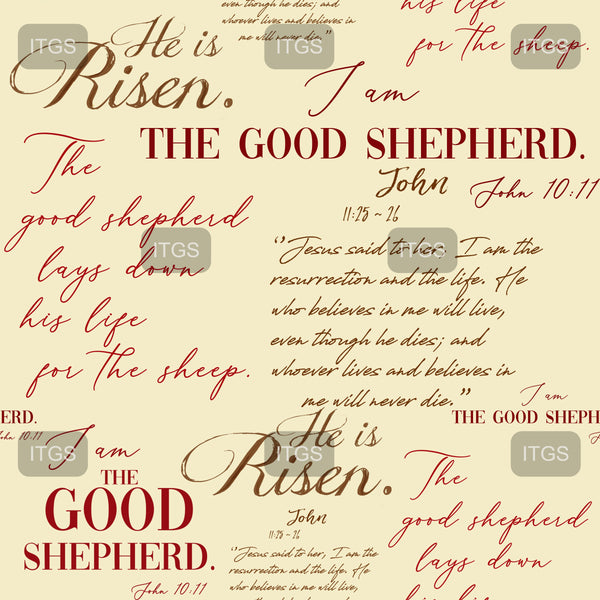 even though he dies; and
whoever lives and believes in
me will never die.”
his life
for the sheep.
He is
Risen.
I am
THE GOOD SHEPHERD.
John 10:11
The
good shepherd
lays down
his life
for the sheep.
John
11:25 ~ 26
“Jesus said to her, I am the
resurrection and the life. He
who believes in me will live,
even though he dies; and
whoever lives and believes in
me will never die.”
I am
THE GOOD SHEPH
ERD.
John 10:11
I am
THE
GOOD
SHEPHERD.
John 10:11
He is
Risen.
John
11:25 ~ 26
“Jesus said to her, I am the
resurrection and the life. He
who believes in me will live,
even though he dies; and
The
good shepherd
lays down
his life
ITGS
ITGS
ITGS
ITGS
ITGS
ITGS
ITGS
ITGS